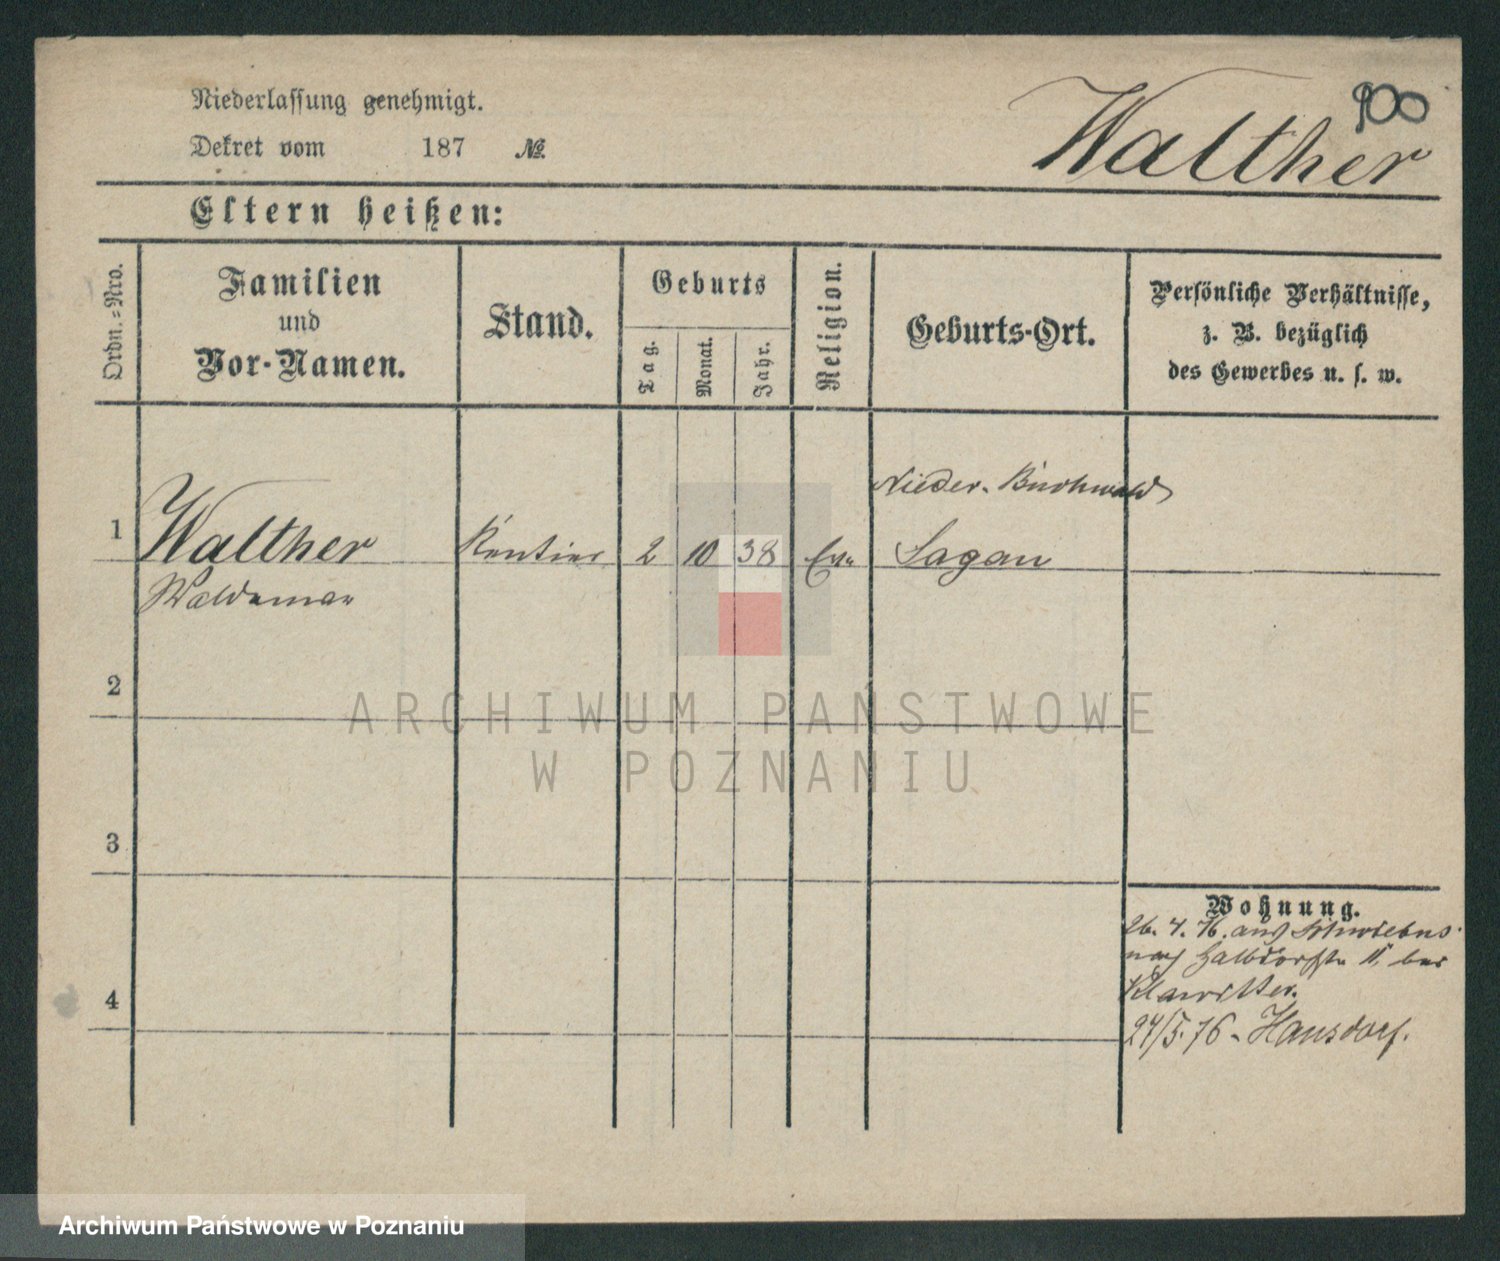 Niederlassung genehmigt.
Dekret vom 187 №
900
Walther
Eltern heißen:
Ordn.=Nro.
Familien
und
Vor-Namen.
Stand.
Geburts
Tag.
Monat.
Jahr.
Religion.
Geburts-Ort.
Persönliche Verhältnisse,
z. B. bezüglich
des Gewerbes u. s. w.
Nieder. Buchwald
1 Walther Rentier 2 10 38 Ev. Sagan
Waldemar
2
3
4
Wohnung.
26. 4. 76. aus Schwiebus
nach Halbdorfstr. bei
Klawitter.
24/5. 76 - Hansdorf.
ARCHIWUM PAŃSTWOWE
W POZNANIU
Archiwum Państwowe w Poznaniu